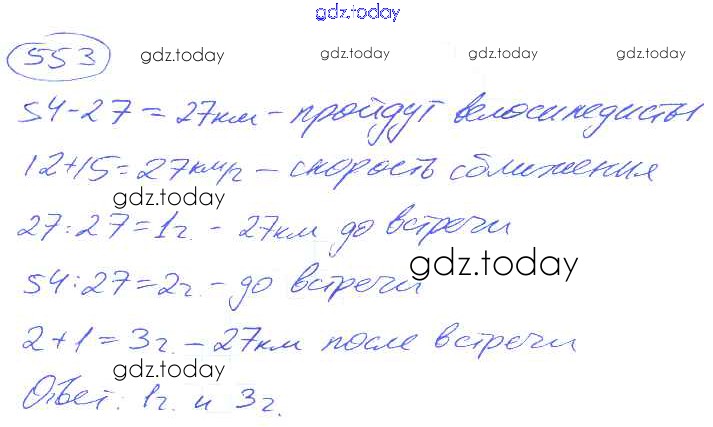 gdz.today
553 gdz.today gdz.today gdz.today gdz.today
54-27=27км - пройдут велосипедисты
12+15=27км/ч - скорость сближения
gdz.today
27:27=1ч. - 27км до встречи
gdz.today
54:27=2ч. - до встречи
2+1=3ч. - 27км после встречи
gdz.today
Ответ: 1ч. и 3ч.